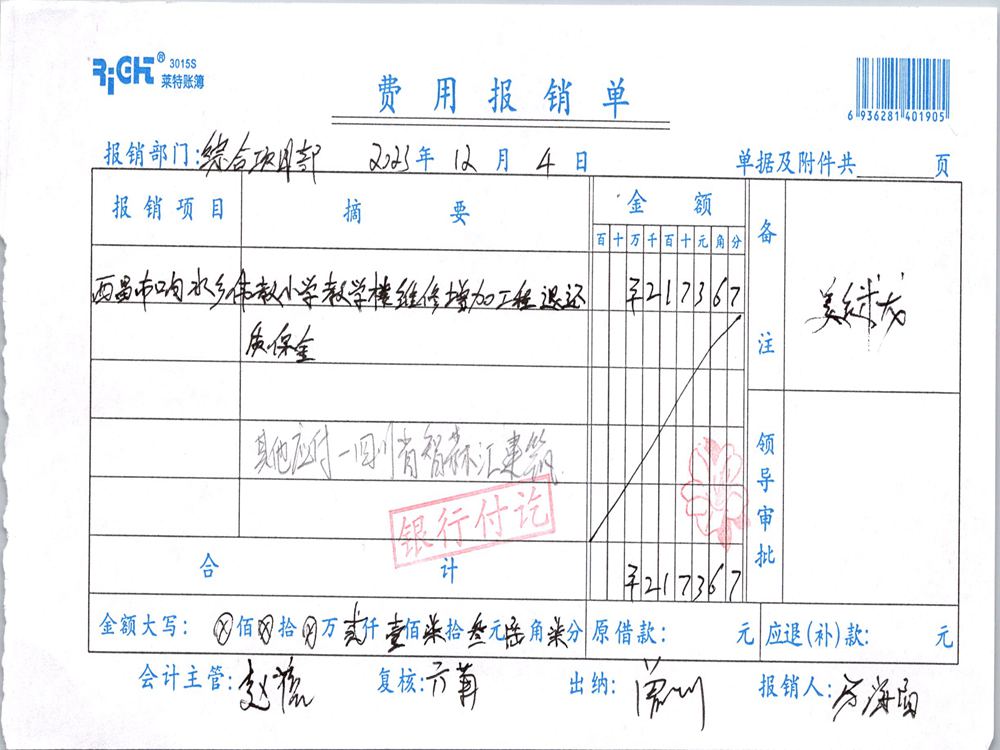 RiGHT® 3015S
莱特账簿
费用报销单
6 936281 401905
报销部门:综合项目部 2023年 12月 4日 单据及附件共 页
报销项目 摘要 金额 备注
百十万千百十元角分
西昌市响水乡伟教小学教学楼维修增加工程退还 ¥217367
质保金
其他应付一四川省智森汇建筑
银行付讫
领导审批
合计 ¥217367
金额大写: ⊗佰⊗拾⊗万贰仟壹佰柒拾叁元陆角柒分 原借款: 元 应退(补)款: 元
会计主管:赵 复核: 出纳: 报销人: